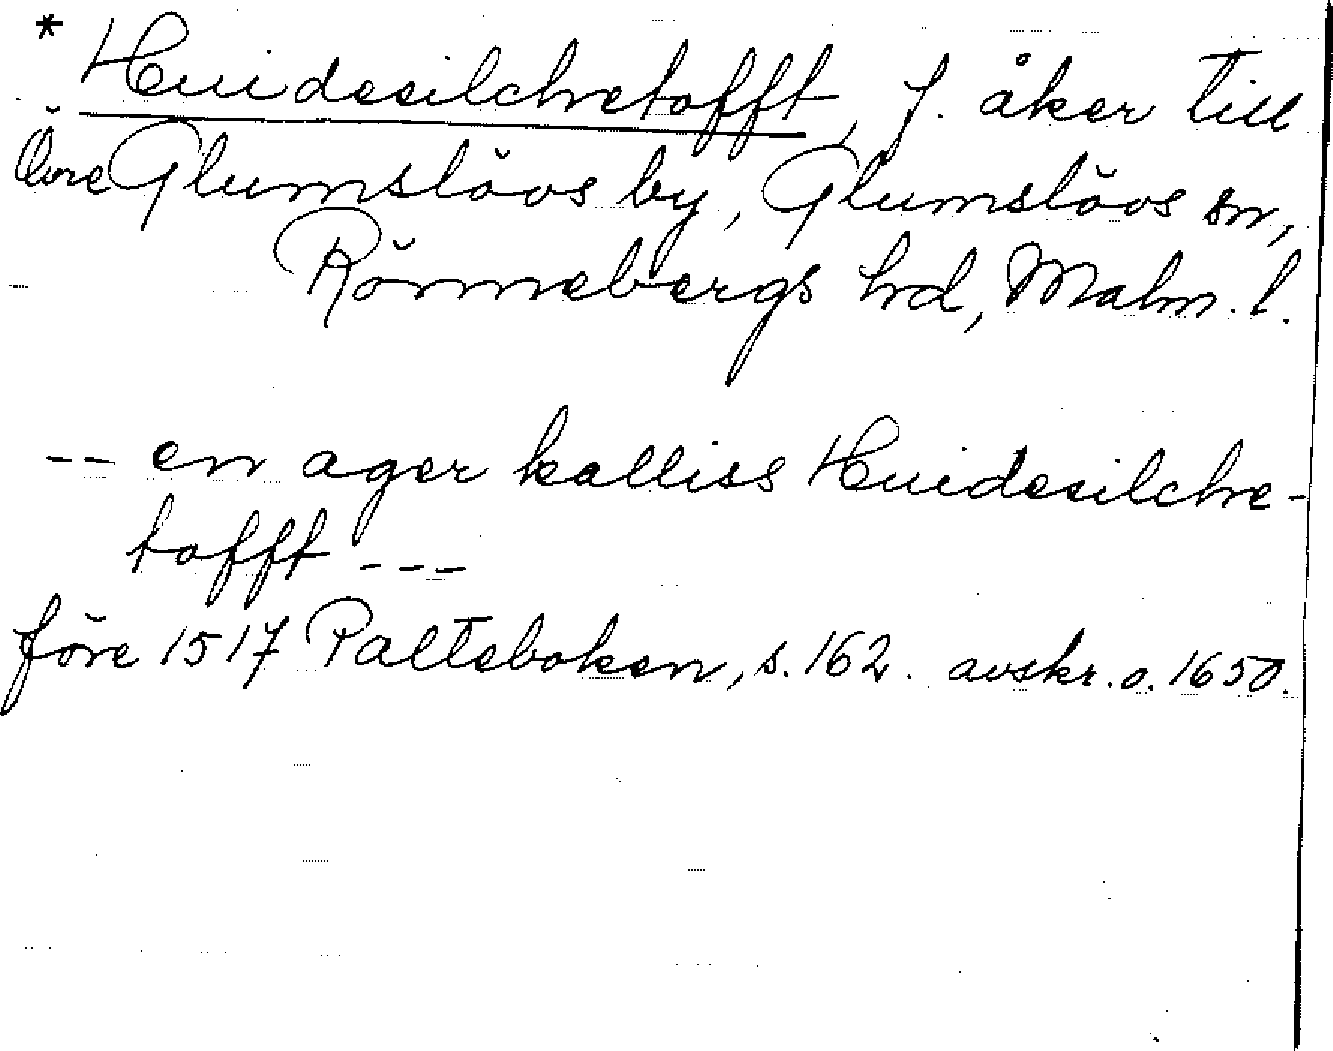 * Huidesilchetofft, f. åker till
Övre Glumslövs by, Glumslövs sn,
Rönnebergs hd, Malm. l.
-- en ager kalliss Huidesilche-
tofft ---
före 1517 Palteboken, s. 162. avskr. o. 1650.